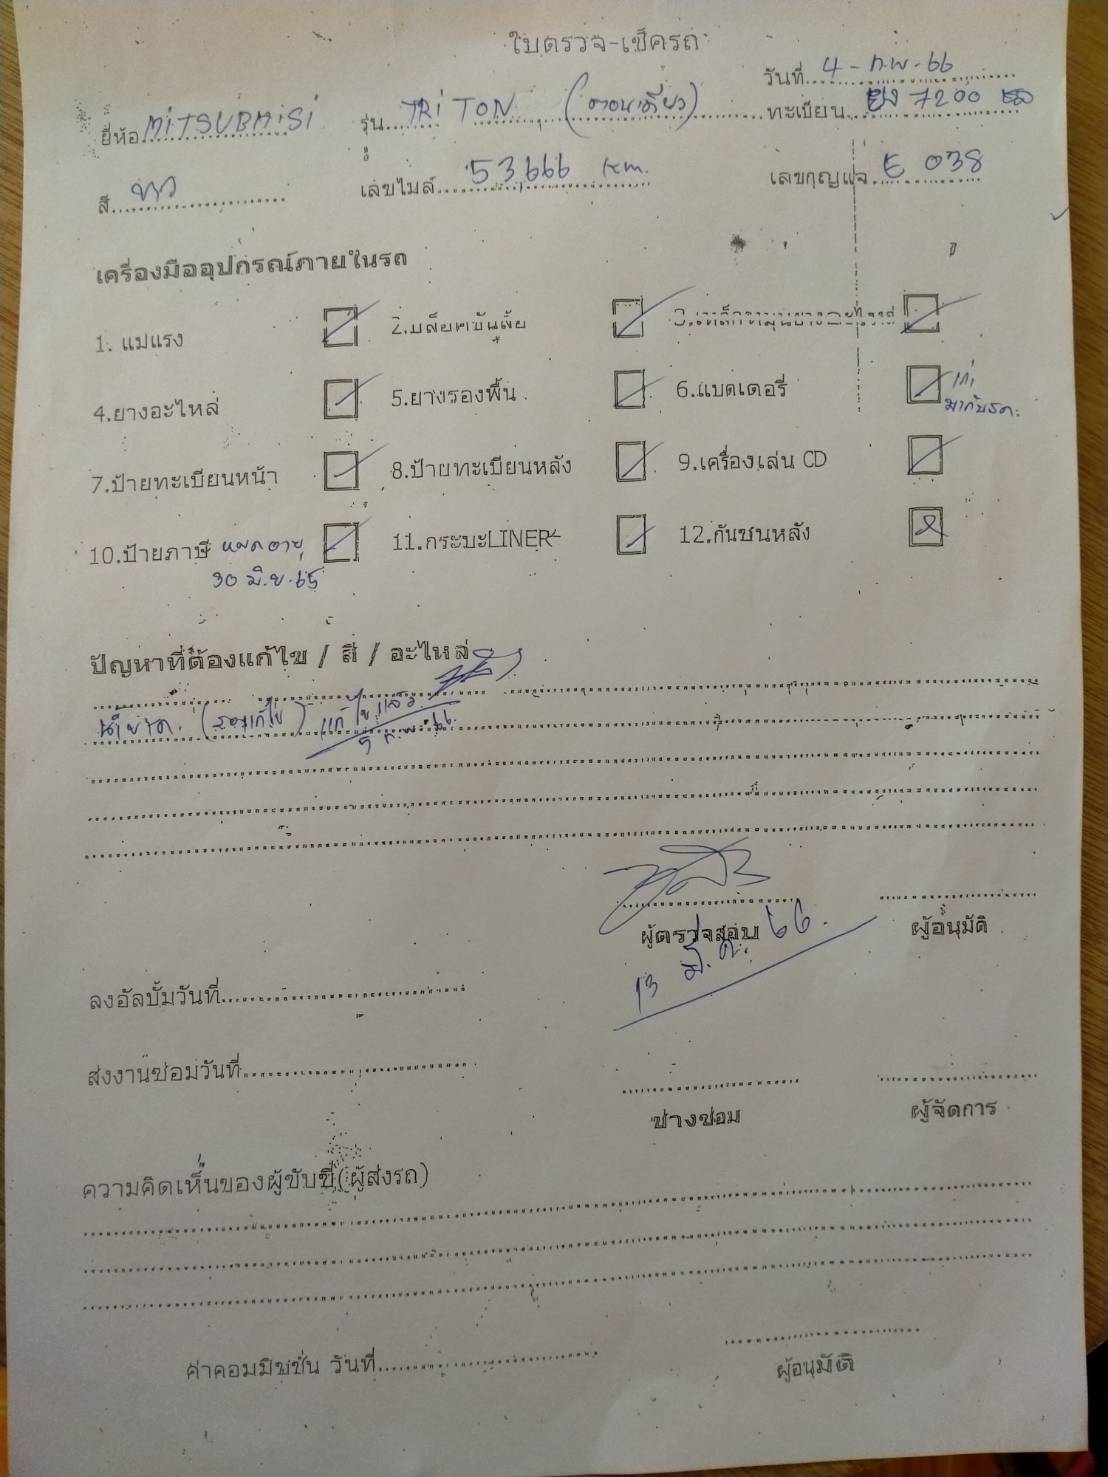 ใบตรวจ-เช็ครถ
วันที่ 4 - ก.พ. 66
ยี่ห้อ MITSUBMISI รุ่น TRITON (ตอนเดียว) ทะเบียน 7200
สี ขาว เลขไมล์ 53,666 km. เลขกุญแจ E 038
เครื่องมืออุปกรณ์ภายในรถ
1. แม่แรง 2.บล็อคขันล้อ
4.ยางอะไหล่ 5.ยางรองพื้น 6.แบตเตอรี่ เก่า
มากับรถ
7.ป้ายทะเบียนหน้า 8.ป้ายทะเบียนหลัง 9.เครื่องเล่น CD
10.ป้ายภาษี หมดอายุ 11.กระบะLINER 12.กันชนหลัง
30 มิ.ย. 65
ปัญหาที่ต้องแก้ไข / สี / อะไหล่
(รอแก้ไข) แก้ไขแล้ว
9 ก.พ. 66
ผู้ตรวจสอบ ผู้อนุมัติ
13 มี.ค. 66.
ลงอัลบั้มวันที่
ส่งงานซ่อมวันที่
ช่างซ่อม ผู้จัดการ
ความคิดเห็นของผู้ขับขี่(ผู้ส่งรถ)
ค่าคอมมิชชั่น วันที่
ผู้อนุมัติ